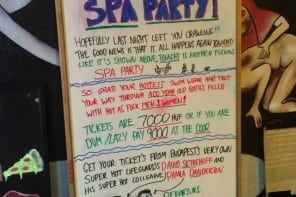 SPA PARTY!
HOPEFULLY LAST NIGHT LEFT YOU CRAWLING!!!
THE GOOD NEWS IS THAT IT ALL HAPPENS AGAIN TONIGHT
LIKE IT'S SHOWN ABOVE TONIGHT IS MOTHER FUCKING
SPA PARTY
SO GRAB YOUR HOTTEST SWIM WEAR AND TROT
YOUR WAY THROUGH 400 YEAR OLD BATHS FILLED
WITH HOT AS FUCK MEN & WOMEN!
TICKETS ARE 7000 HUF OR IF YOU ARE
DUM/LAZY PAY 9000 AT THE DOOR
GET YOUR TICKETS FROM BUDAPEST'S VERY OWN
SUPER HOT LIFEGUARDS DAVID
HIS SUPER HOT COLLEAGUE
DEPARTURE